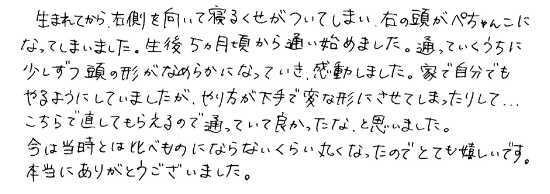 生まれてから、右側を向いて寝るくせがついてしまい、右の頭がぺちゃんこに
なってしまいました。生後5ヵ月頃から通い始めました。通っていくうちに
少しずつ頭の形がなめらかになっていき、感動しました。家で自分でも
やるようにしていましたが、やり方が下手で変な形にさせてしまったりして...
こちらで直してもらえるので通っていて良かったな、と思いました。
今は当時とは比べものにならないくらい丸くなったのでとても嬉しいです。
本当にありがとうございました。